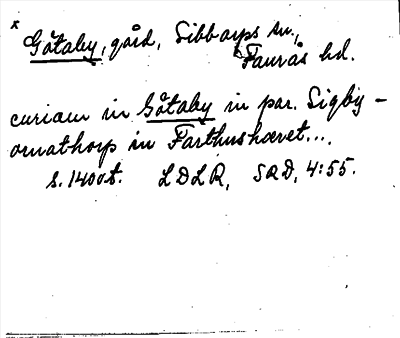 x
Gåtaby, gård, Sibbarps sn.,
Faurås hd.
curiam in Gåtaby in par. Sigby-
ornathorp in Farthushæret...
s. 1400t. LDLR, SRD, 4:55.